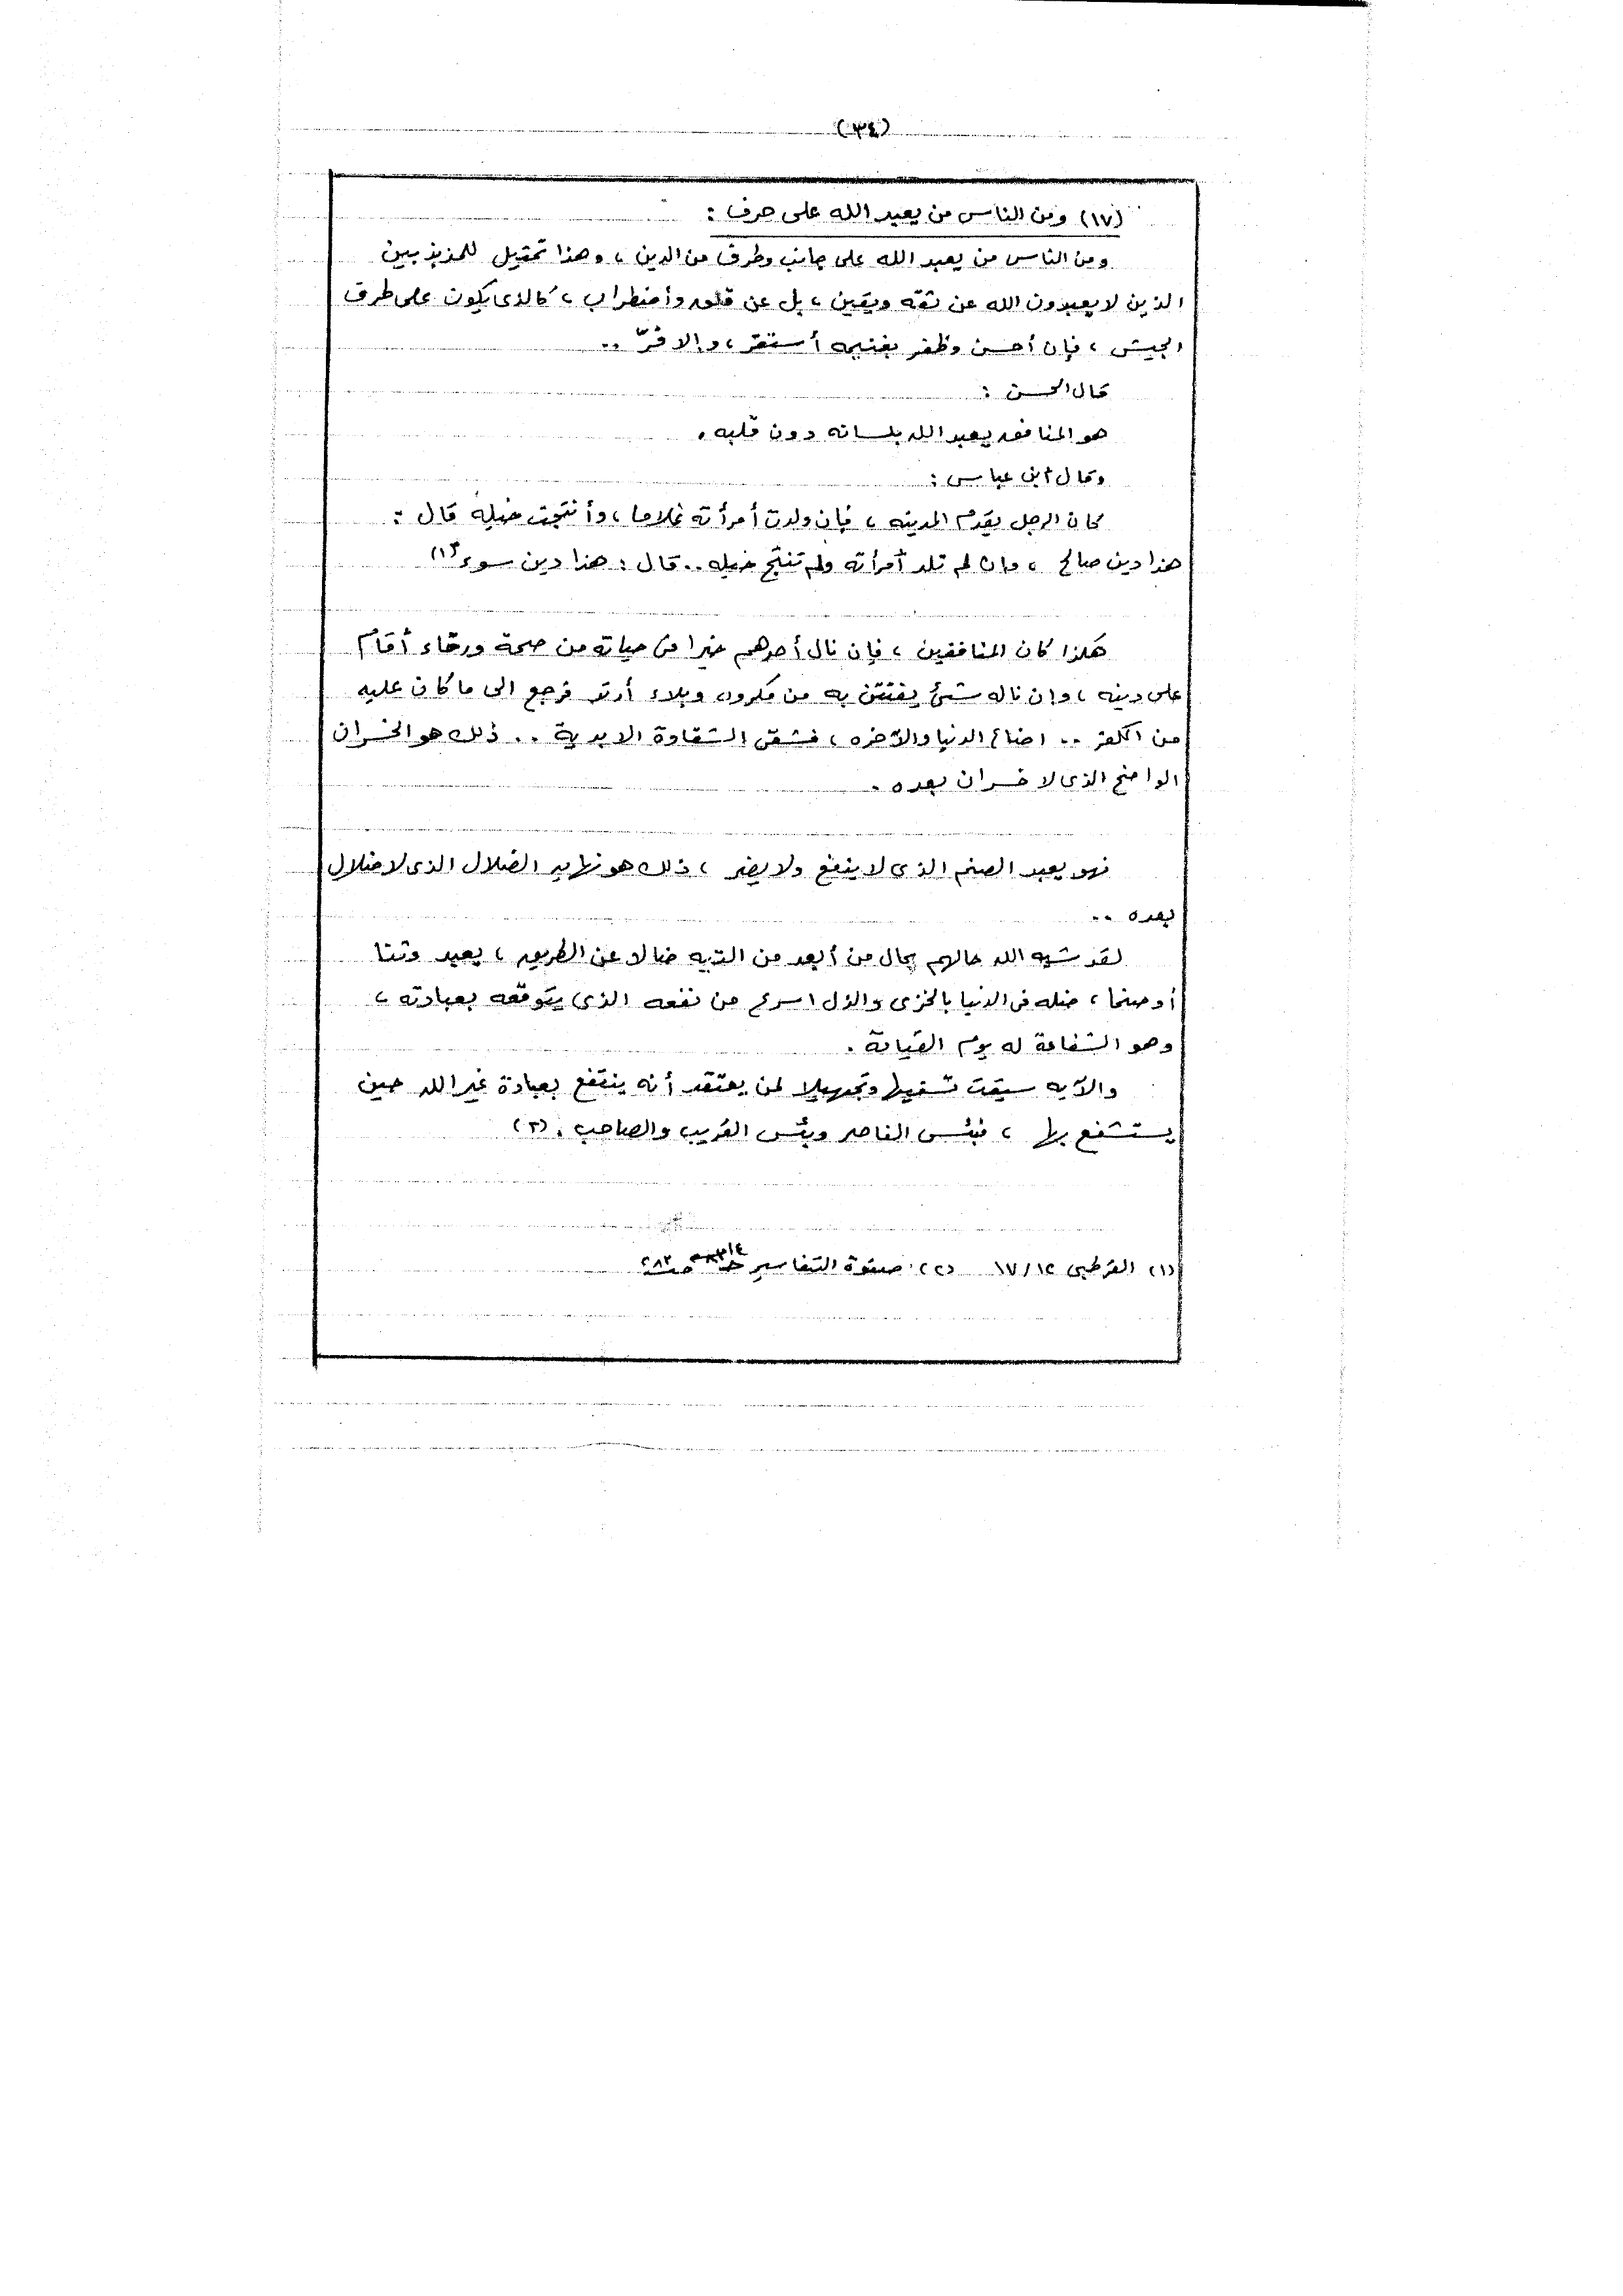 (٣٤)
(١٧) ومن الناس من يعبد الله على حرف :
ومن الناس من يعبد الله على جانب وطرف من الدين ، وهذا تمثيل للمذبذبين
الذين لا يعبدون الله عن ثقه ويقين ، بل عن قلق وأضطراب ، كالذى يكون على طرف
الجيش ، فإن أحسن وظفر بغنيمه أستقر ، وإلا فرّ ..
قال الحسن :
هو المنافق يعبد الله بلسانه دون قلبه .
وقال أبن عباس :
كان الرجل يقدم المدينه ، فإن ولدت أمرأته غلاما ، وأنتجت خيله قال :
هذا دين صالح ، وان لم تلد أمرأته ولم تنتج خيله .. قال : هذا دين سوء (١)
هكذا كان المنافقين ، فإن نال أحدهم خيرا فى حياته من صحة ورخاء أقام
على دينه ، وإن ناله شئ يفتتن به من مكروه وبلاء أرتد فرجع الى ما كان عليه
من الكفر .. اضاع الدنيا والآخره ، فشقى الشقاوة الابدية .. ذلك هو الخسران
الواضح الذى لا خسران بعده .
فهو يعبد الصنم الذى لا ينفع ولا يضر ، ذلك هو نهاية الضلال الذى لا ضلال
بعده ..
لقد شبه الله حالهم بحال من أبعد من التيه ضالا عن الطريق ، يعبد وثنا
أو صنما ، ضله فى الدنيا بالخزى والذل اسرع من نفعه الذى يتوقعه بعبادته ،
وهو الشفاعة له يوم القيامة .
والآيه سيقت تسفيها وتجهيلا لمن يعتقد أنه ينتفع بعبادة غير الله حين
يستشفع بها ، فبئس الناصر وبئس القريب والصاحب . (٢)
(١) القرطبى ١٢/١٧ (٢) صفوة التفاسير